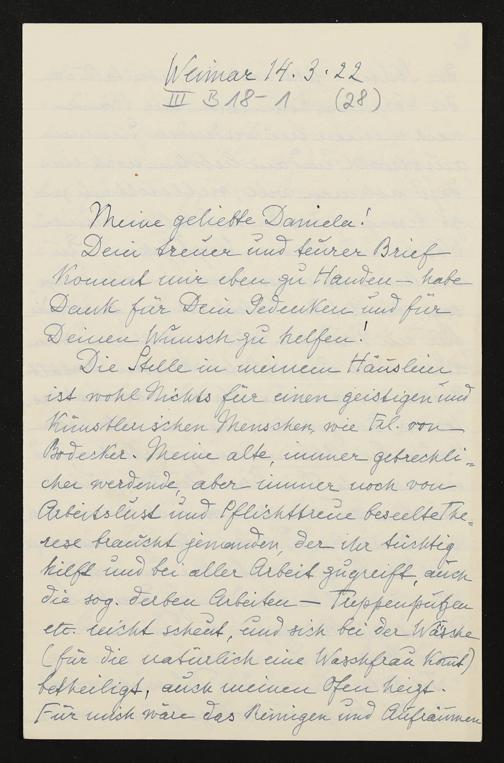 Weimar 14. 3. 22
III B 18-1 (28)
Meine geliebte Daniela!
Dein treuer und teurer Brief
kommt mir eben zu Handen — habe
Dank für Dein Gedenken und für
Deinen Wunsch zu helfen!
Die Stelle in meinem Häuslein
ist wohl Nichts für einen geistigen und
künstlerischen Menschen, wie Frl. von
Bodecker. Meine alte, immer gebrechli=
cher werdende, aber immer noch von
Arbeitslust und Pflichttreue beseelte The=
rese braucht jemanden, der ihr tüchtig
hilft und bei aller Arbeit zugreift, auch
die sog. derben Arbeiten — Treppenputzen
etc. nicht scheut, und sich bei der Wäsche
(für die natürlich eine Waschfrau komt)
betheiligt, auch meinen Ofen heizt.
Für mich wäre das Reinigen und Aufräumen